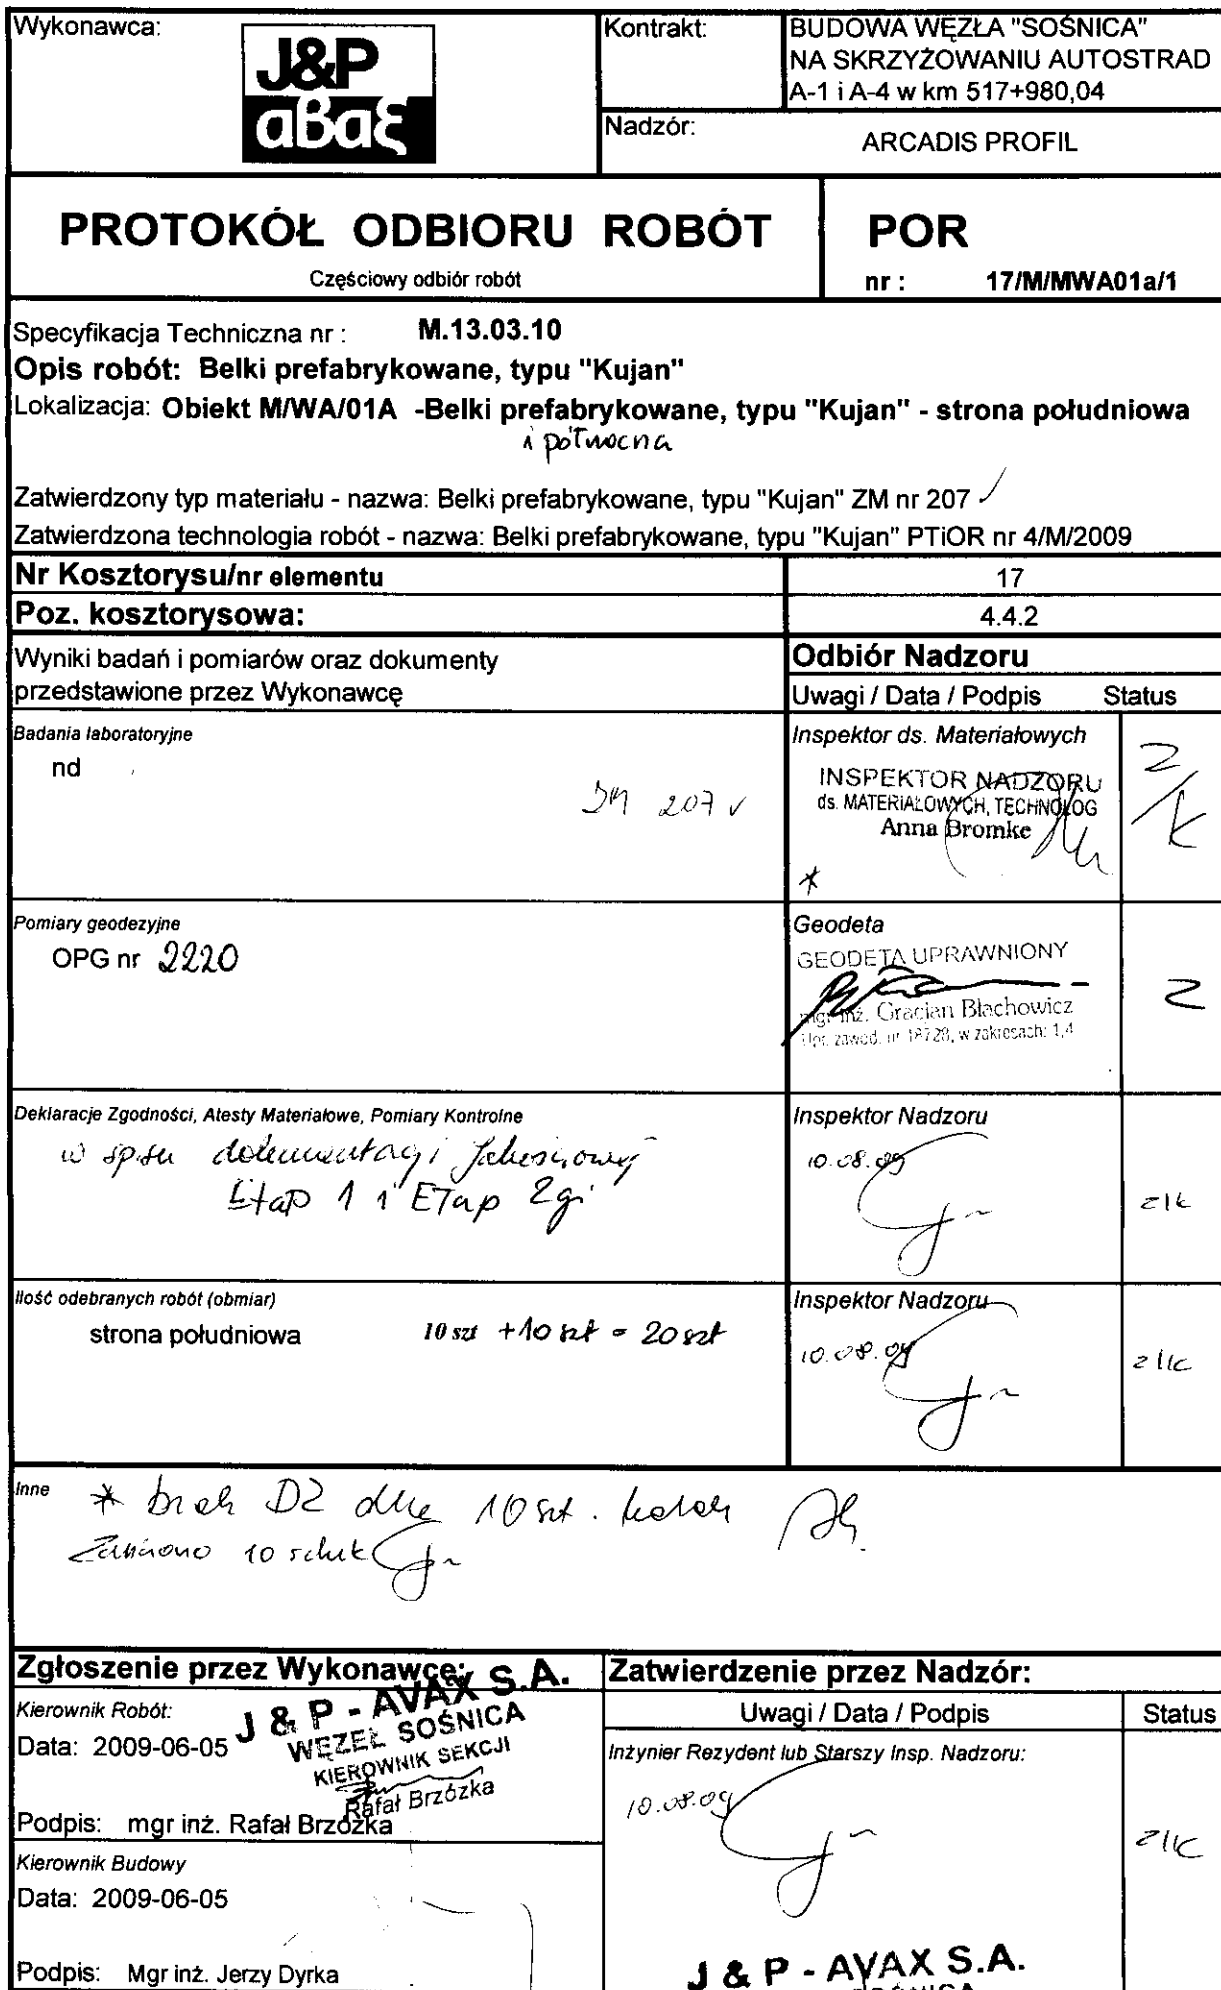 Wykonawca:
J&P
αβαξ
Kontrakt:
BUDOWA WĘZŁA "SOŚNICA"
NA SKRZYŻOWANIU AUTOSTRAD
A-1 i A-4 w km 517+980,04
Nadzór:
ARCADIS PROFIL
PROTOKÓŁ ODBIORU ROBÓT
Częściowy odbiór robót
POR
nr : 17/M/MWA01a/1
Specyfikacja Techniczna nr : M.13.03.10
Opis robót: Belki prefabrykowane, typu "Kujan"
Lokalizacja: Obiekt M/WA/01A -Belki prefabrykowane, typu "Kujan" - strona południowa
i północna
Zatwierdzony typ materiału - nazwa: Belki prefabrykowane, typu "Kujan" ZM nr 207 ✓
Zatwierdzona technologia robót - nazwa: Belki prefabrykowane, typu "Kujan" PTiOR nr 4/M/2009
Nr Kosztorysu/nr elementu 17
Poz. kosztorysowa: 4.4.2
Wyniki badań i pomiarów oraz dokumenty
przedstawione przez Wykonawcę
Odbiór Nadzoru
Uwagi / Data / Podpis Status
Badania laboratoryjne
nd
207 ✓
Inspektor ds. Materiałowych
INSPEKTOR NADZORU
ds. MATERIAŁOWYCH, TECHNOLOG
Anna Bromke
*
Z/K
Pomiary geodezyjne
OPG nr 2220
Geodeta
GEODETA UPRAWNIONY
mgr inż. Gracjan Błachowicz
Upr. zawod. nr 18728, w zakresach: 1,4
Z
Deklaracje Zgodności, Atesty Materiałowe, Pomiary Kontrolne
w spisie dokumentacji jakościowej
Etap 1 i Etap 2gi
Inspektor Nadzoru
10.08.09
z/k
Ilość odebranych robót (obmiar)
strona południowa 10 szt + 10 szt = 20 szt
Inspektor Nadzoru
10.08.09
z/k
Inne
* brak DZ dla 10 szt. belek
10 sztuk
Zgłoszenie przez Wykonawcę:
Kierownik Robót:
Data: 2009-06-05
J & P - AVAX S.A.
WĘZEŁ SOŚNICA
KIEROWNIK SEKCJI
Rafał Brzózka
Podpis: mgr inż. Rafał Brzózka
Kierownik Budowy
Data: 2009-06-05
Podpis: Mgr inż. Jerzy Dyrka
Zatwierdzenie przez Nadzór:
Uwagi / Data / Podpis Status
Inżynier Rezydent lub Starszy Insp. Nadzoru:
10.08.09
z/k
J & P - AVAX S.A.